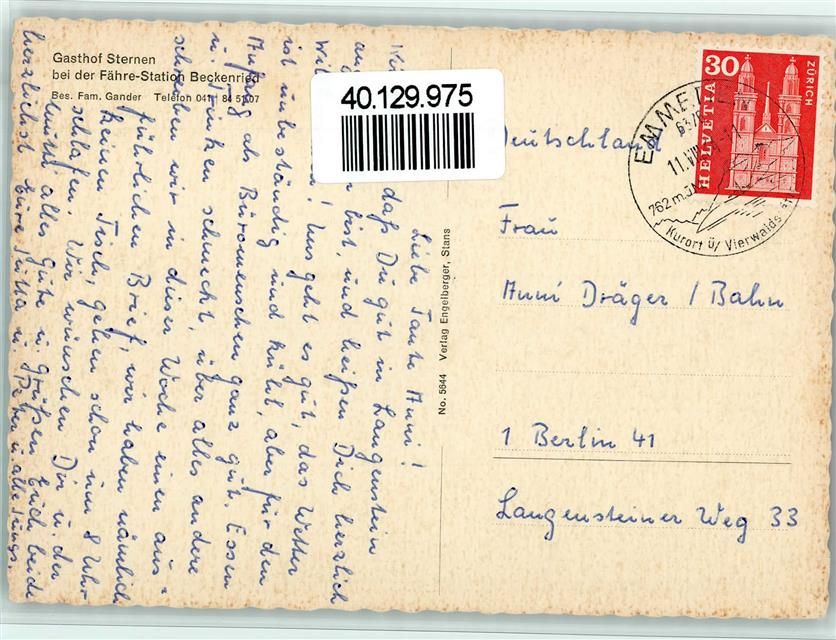 Gasthof Sternen
bei der Fähre-Station Beckenried
Bes. Fam. Gander Telefon 041 84 51 07
40.129.975
HELVETIA
30
ZÜRICH
EMME
11.VIII
762 m.ü.M
Kurort ü/ Vierwalds
No. 5644 Verlag Engelberger, Stans
Deutschland
Frau
Anni Dräger / Bahn
1 Berlin 41
Langensteiner Weg 33
Liebe Tante Anni!
daß Du gut in Langenstein
bist, und heißen Dich herzlich
Uns geht es gut, das Wetter
ist unbeständig und kühl, aber für den
Anfang als Büromenschen ganz gut. Essen
u. Trinken schmeckt über alles andere
schreiben wir in dieser Woche einen aus=
führlichen Brief, wir haben nämlich
keinen Tisch, gehen schon um 8 Uhr
schlafen. Wir wünschen Dir u. der
alles Gute u. Grüßen Euch beide
herzlichst Eure Jutta u. Peter u. alle Jungs